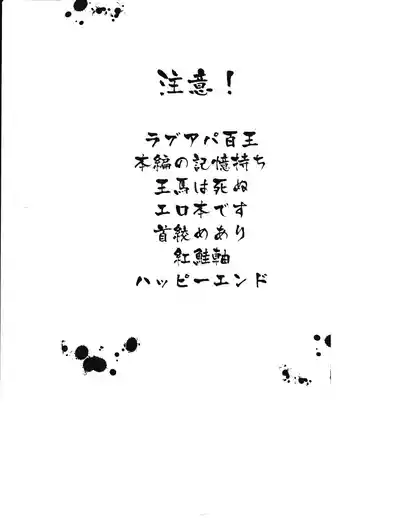 注意！
ラブアパ百王
本編の記憶持ち
王馬は死ぬ
エロ本です
首絞めあり
紅鮭軸
ハッピーエンド